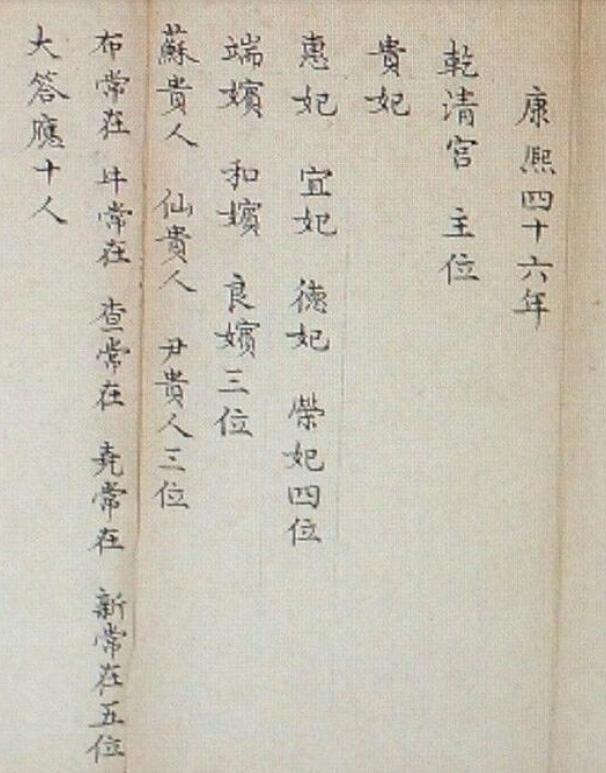 康熙四十六年
乾清宮 主位
貴妃
惠妃 宜妃 德妃 榮妃四位
端嬪 和嬪 良嬪三位
蘇貴人 仙貴人 尹貴人三位
布常在 牛常在 查常在 堯常在 新常在五位
大答應十人